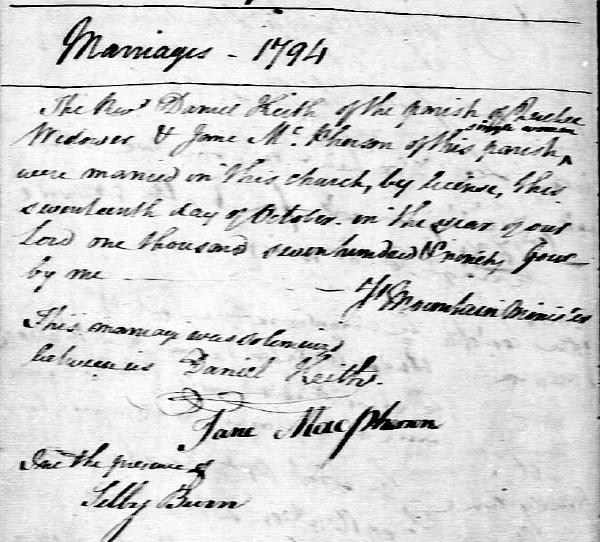 Marriages - 1794
The Revd Daniel Keith of the parish of Quebec
Widower & Jane Mc Pherson of this parish, single woman
were married in this church, by license, this
seventeenth day of October in the year of our
Lord one thousand seven hundred & ninety four
by me — — Mountain Minister
This marriage was solemnized
between us Daniel Keith.
Jane MacPherson
In the presence of
Selby Burn